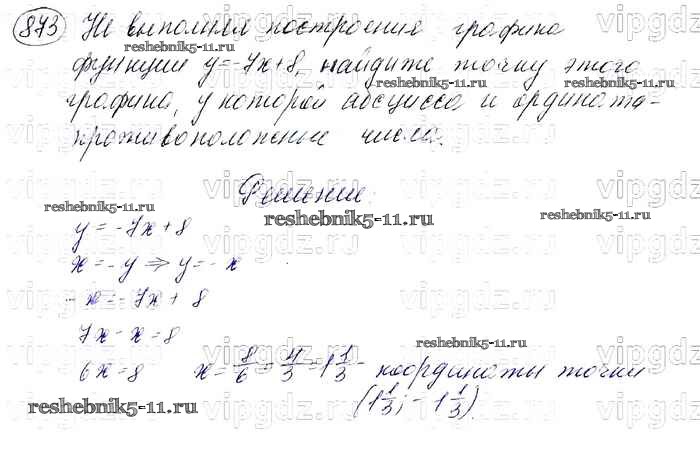 873 Не выполняя построения графика
функции y=-7x+8, найдите точку этого
графика, у которой абсцисса и ордината-
противоположные числа.
Решение:
y=-7x+8
x=-y⇒y=-x
-x=-7x+8
7x-x=8
6x=8 x=8/6=4/3=1 1/3- координаты точки
(1 1/3; -1 1/3).
reshebnik5-11.ru
reshebnik5-11.ru
reshebnik5-11.ru
reshebnik5-11.ru
reshebnik5-11.ru
reshebnik5-11.ru
reshebnik5-11.ru
reshebnik5-11.ru
vipgdz.ru